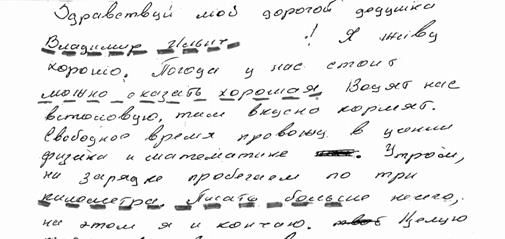 Здравствуй мой дорогой дедушка
Владимир Ильич ! Я живу
хорошо. Погода у нас стоит
можно сказать хорошая. Водят нас
встоловую, там вкусно кормят.
Свободное время провожу в цени
физика и математике . Утром,
на зарядке пробегаем по три
километра. Писать больше нечего,
на этом я и кончаю. Целую